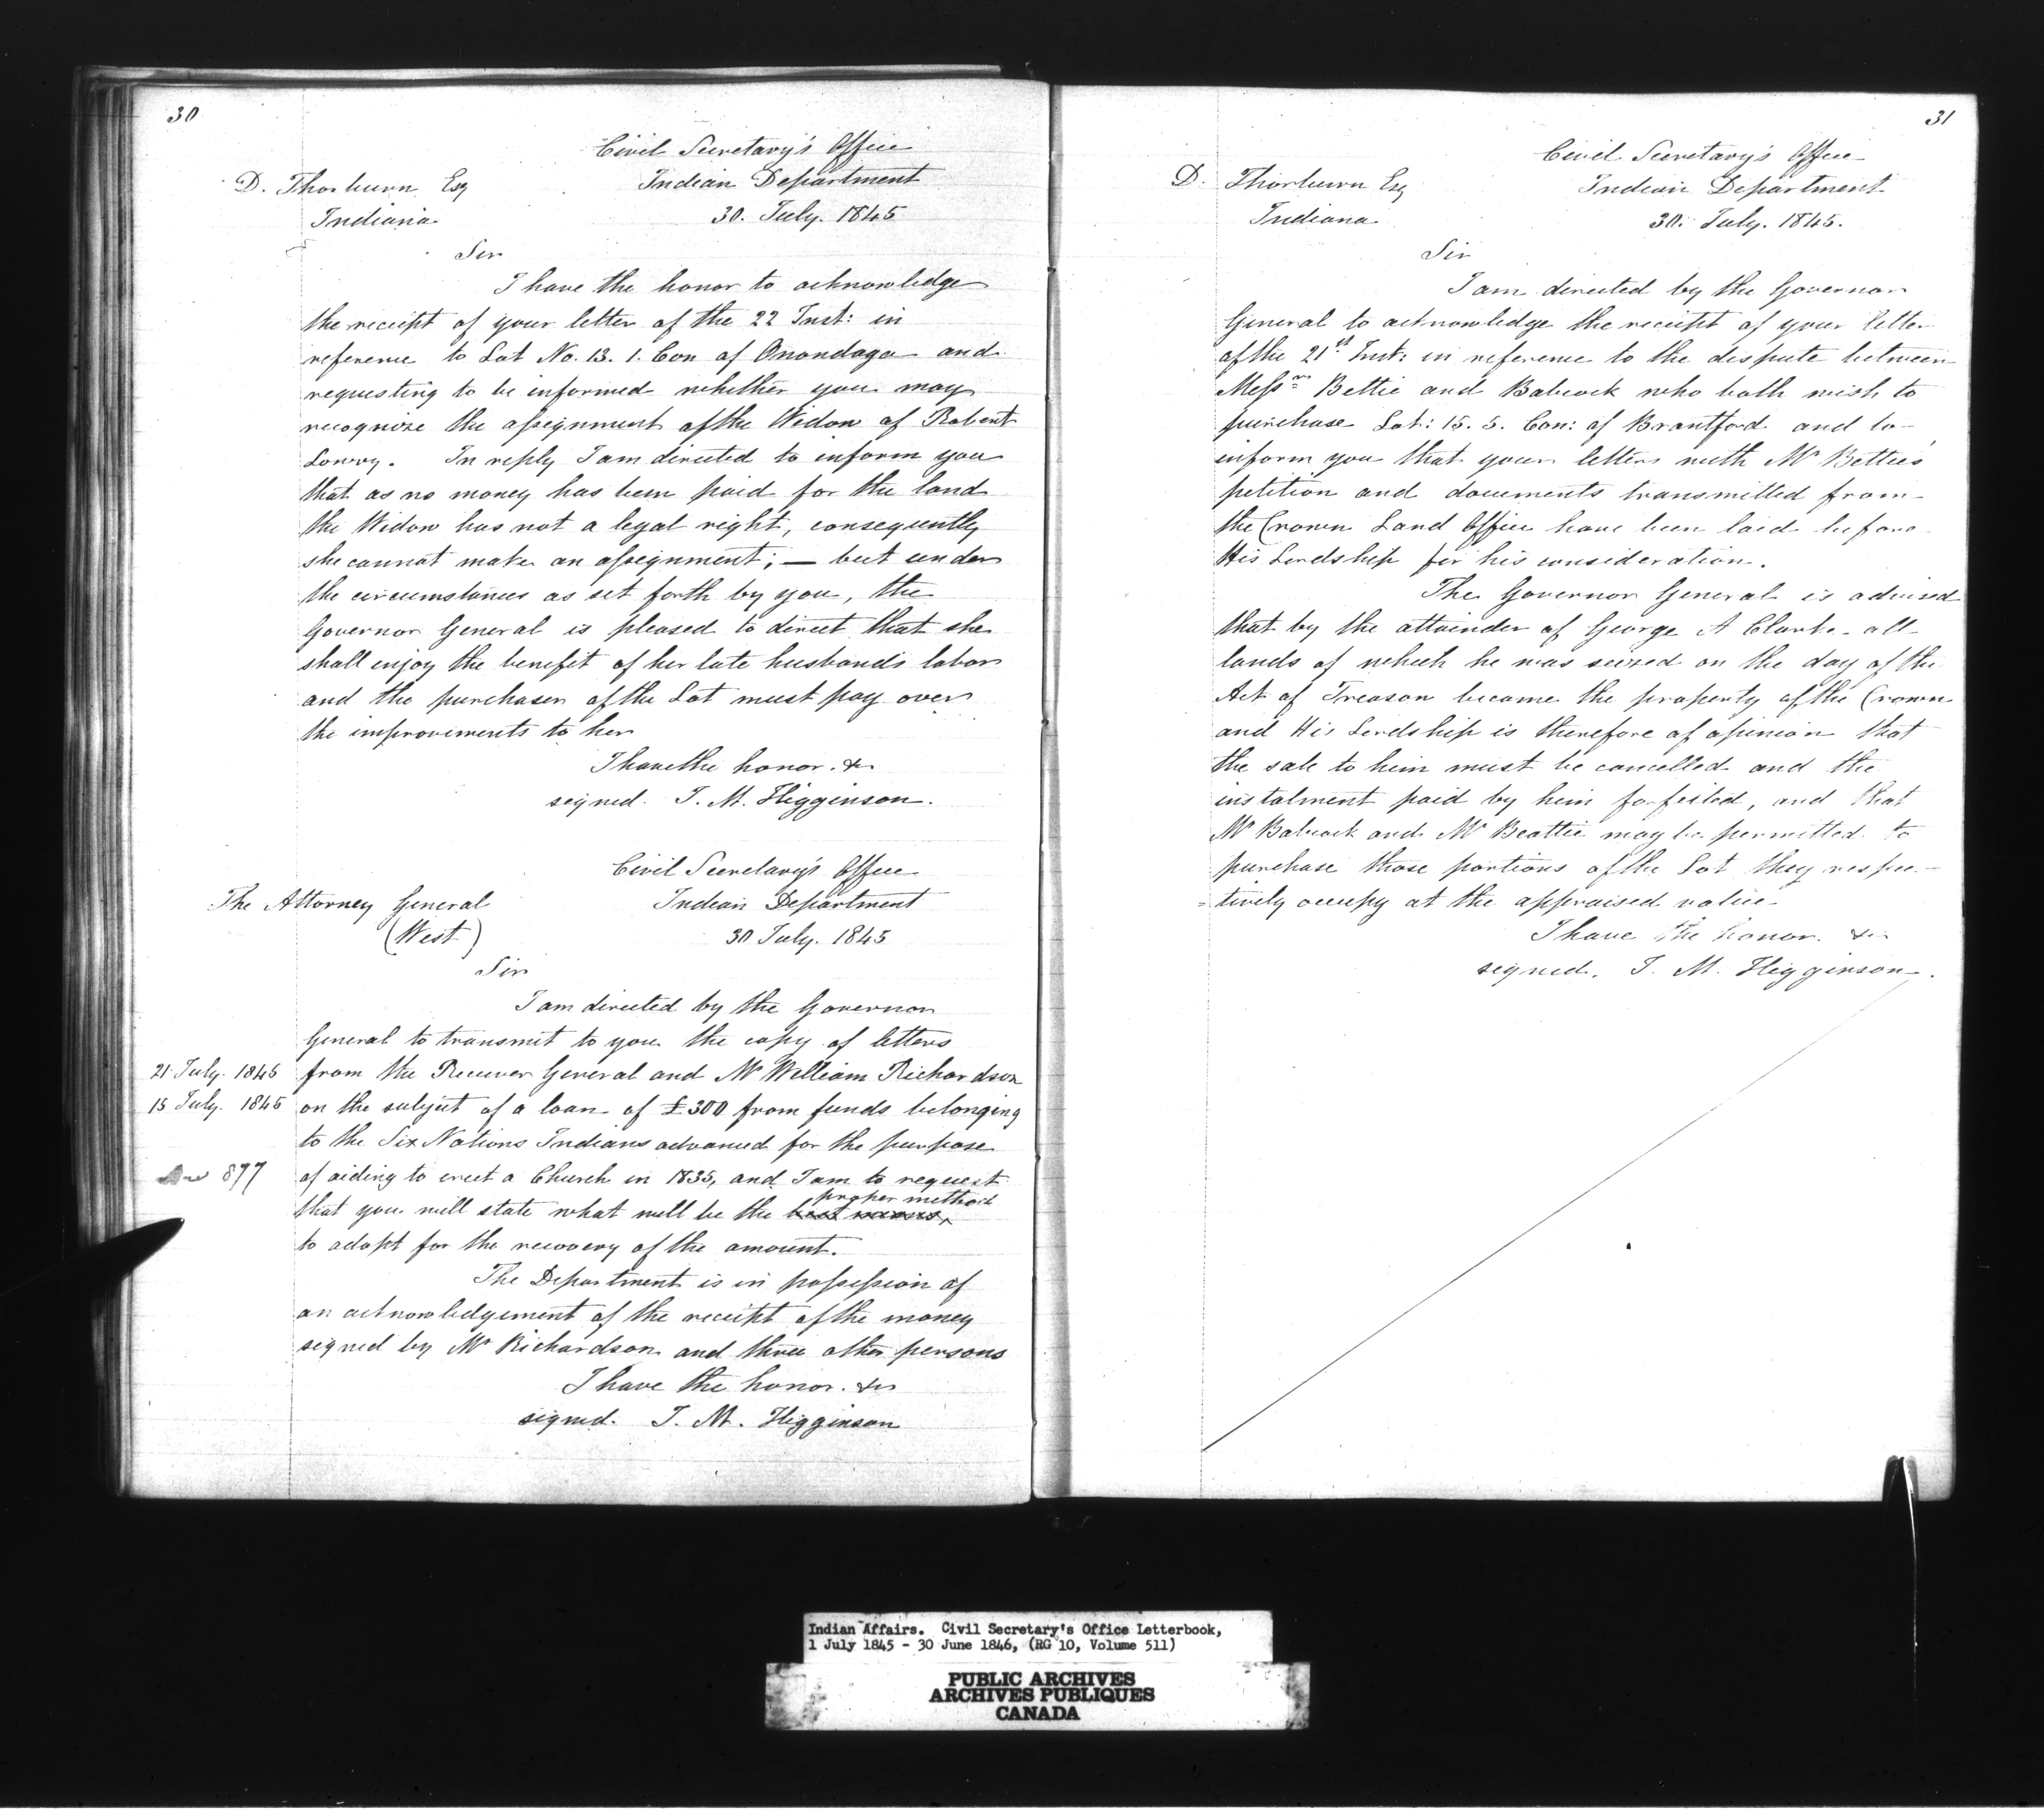 30
Civil Secretary's Office
D. Thorburn Esq Indian Department
Indiana 30. July. 1845
Sir
I have the honor to acknowledge
the receipt of your letter of the 22 Inst: in
reference to Lot No. 13. 1. Con of Onondaga and
requesting to be informed whether you may
recognize the assignment of the Widow of Robert
Lowry. In reply I am directed to inform you
that as no money has been paid for the land
the Widow has not a legal right, consequently
she cannot make an assignment; — but under
the circumstances as set forth by you, the
Governor General is pleased to direct that she
shall enjoy the benefit of her late husband's labor
and the purchaser of the Lot must pay over
the improvements to her
I have the honor. &c
signed. J. M. Higginson.
Civil Secretary's Office
The Attorney General Indian Department
(West) 30 July. 1845
Sir
I am directed by the Governor
General to transmit to you the copy of letters
21 July. 1845 from the Receiver General and Mr William Richardson
15 July. 1845 on the subject of a loan of £300 from funds belonging
to the Six Nations Indians advanced for the purpose
877 of aiding to erect a Church in 1835, and I am to request
proper method
that you will state what will be the best means
to adopt for the recovery of the amount.
The Department is in possession of
an acknowledgement of the receipt of the money
signed by Mr Richardson and three other persons
I have the honor. &c
signed. J. M. Higginson
31
Civil Secretary's Office
D. Thorburn Esq Indian Department
Indiana 30. July. 1845.
Sir
I am directed by the Governor
General to acknowledge the receipt of your letter
of the 21st. Inst: in reference to the dispute between
Messrs Bettie and Babcock who both wish to
purchase Lot: 15. 5. Con: of Brantford and to
inform you that your letters with Mr Bettie's
petition and documents transmitted from
the Crown Land Office have been laid before
His Lordship for his consideration.
The Governor General is advised
that by the attainder of George A Clarke all
lands of which he was seized on the day of the
Act of Treason became the property of the Crown
and His Lordship is therefore of opinion that
the sale to him must be cancelled and the
instalment paid by him forfeited, and that
Mr Babcock and Mr Beattie may be permitted to
purchase those portions of the Lot they respec-
=tively occupy at the appraised value
I have the honor. &c
signed. J. M. Higginson.
Indian Affairs. Civil Secretary's Office Letterbook,
1 July 1845 - 30 June 1846, (RG 10, Volume 511)
PUBLIC ARCHIVES
ARCHIVES PUBLIQUES
CANADA